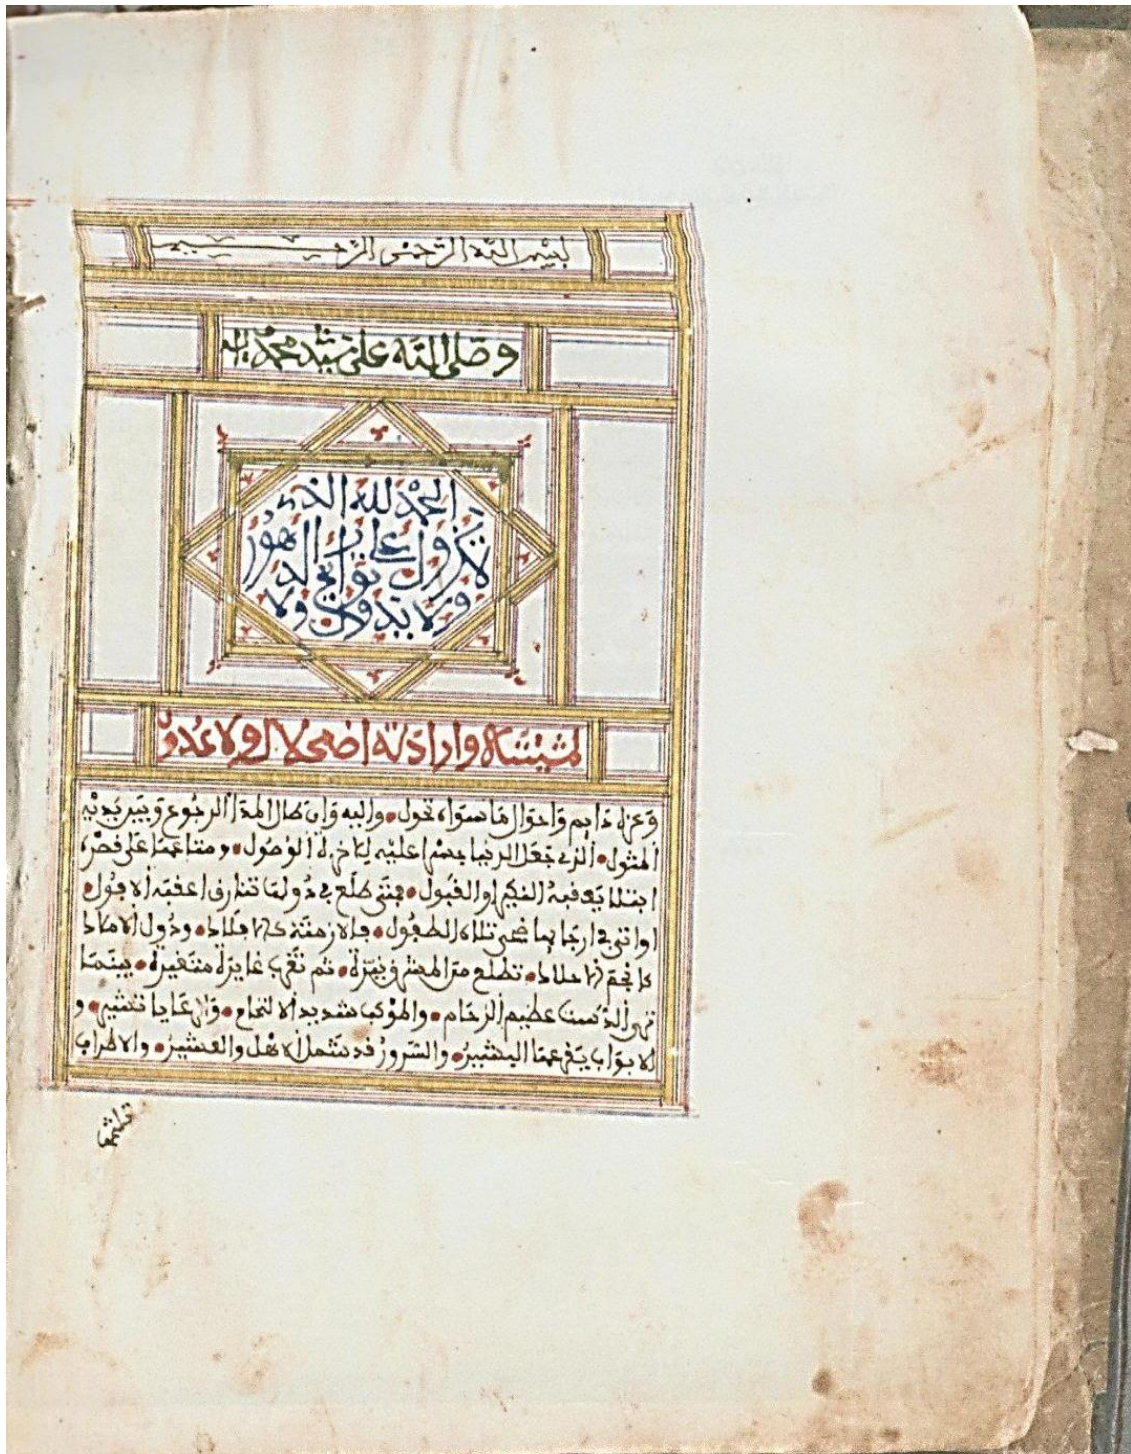 بسم الله الرحمن الرحيم
وصلى الله على سيد محمد
الحمد لله الذي
لا تزول على
توالي الدهور
ولا يدول وله
لمشيئته وارادته اضمحلال ولا عدول
وعزه دايم واحوال ما سواه تحول واليه وان طال المدا الرجوع وبين يديه
المثول الذي جعل الدنيا جسرا عليه للاخرة الوصول ومتاعها على قصره
ابتلا يعقبه النكير او القبول بينى طلع في دولها شارق اعقبه الافول
او اتى في ارجايها ضحى تلاه الطفول والازمنة كالافلاك ودول الاملاك
كانجم الاحلاك تطلع من المشرق نيرة ثم تغرب غايرة متغيرة بينما
ترى الدست عظيم الزحام والموكب شديد الالتحام والرعايا تشير و
الابواب يقرعها البشير والسرور قد شمل الاهل والعشير والاطراب